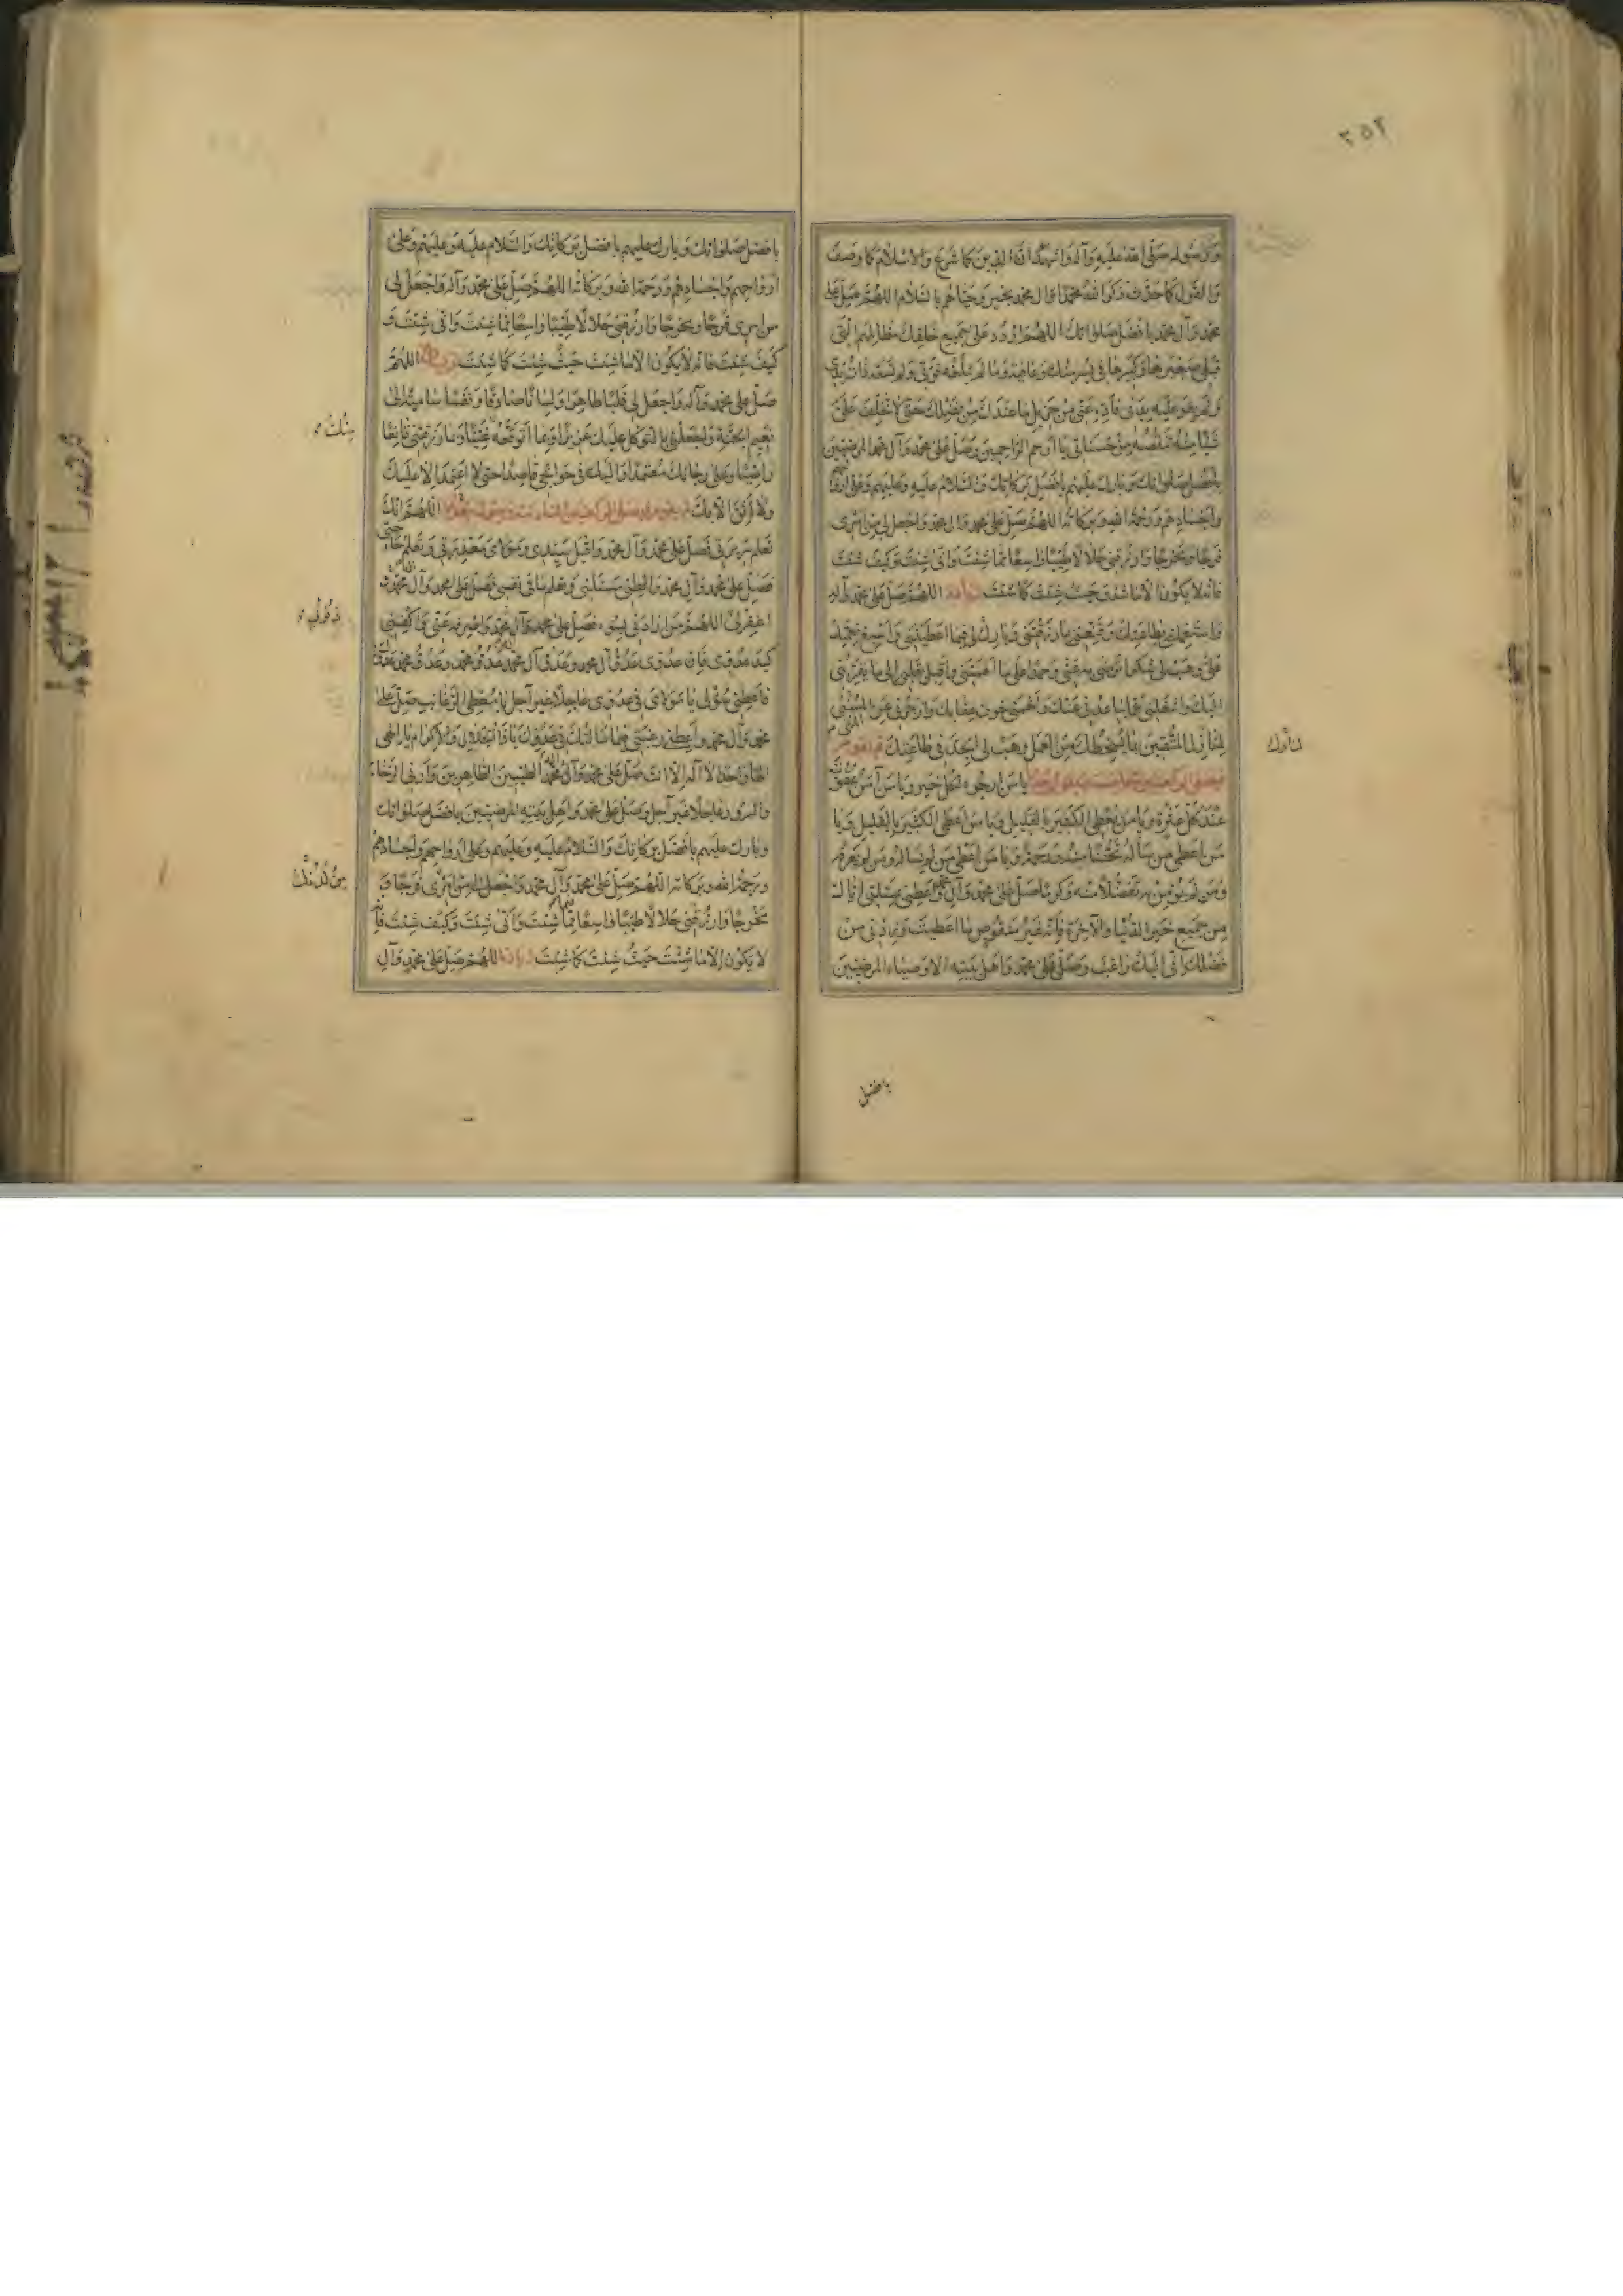 ٢٥٢
وَرَسُولُه صَلَّى الله عَلَيهِ وَآلِه وَاشهَدُ انَّ الدّينَ كَمَا شَرَعَ وَالاِسْلَامَ كَمَا وَصَفَ
وَالقَولَ كَمَا حَدَّثَ ذَكَرَ اللهُ مُحَمَّدًا وَآلَ مُحَمَّدٍ بِخَيرٍ وَحَيَّاهُم بِالسَّلَامِ اللّهُمَّ صَلِّ عَلى
مُحَمَّدٍ وَآلِ مُحَمَّدٍ بِافضَلِ صَلَوَاتِكَ اللّهُمَّ اردُد عَلى جَمِيعِ خَلقِكَ مَظَالِمَهُم الَّتى
قِبَلى صَغِيرَهَا وَكَبِيرَهَا فى يُسرٍ مِنكَ وَعَافِيَةٍ وَمَا لَم تَبلُغهُ قُوَّتى وَلَم تَسَعهُ ذَاتُ يَدِى
وَلَم يَقوَ عَلَيهِ بَدَنى فَأَدِّهِ عَنّى مِن جَزِيلِ مَا عِندَكَ مِن فَضلِكَ حَتّى لَا تُخَلِّفَ عَلَىَّ
شَيئًا مِنهُ تَنقُصُهُ مِن حَسَنَاتى يَا أَرحَمَ الرَّاحِمِينَ وَصَلِّ عَلى مُحَمَّدٍ وَآلِ مُحَمَّدٍ المَرضِيّينَ
بِأَفضَلِ صَلَوَاتِكَ وَبَارِك عَلَيهِم بِافضَلِ بَرَكَاتِكَ وَالسَّلَامُ عَلَيهِ وَعَلَيهِم وَعَلى اروَاحِهِم
وَأَجسَادِهِم وَرَحمَةُ اللهِ وَبَرَكَاتُه اللّهُمَّ صَلِّ عَلى مُحَمَّدٍ وَآلِ مُحَمَّدٍ وَاجعَل لى مِن امرِى
فَرَجًا وَمَخرَجًا وَارزُقنى حَلَالًا طَيِّبًا وَاسِعًا مِمَّا شِئتَ وَانّى شِئتَ وَكَيفَ شِئتَ
فَانَّه لَا يَكُونُ الَّا مَا شِئتَ حَيثُ شِئتَ كَمَا شِئتَ اللّهُمَّ صَلِّ عَلى مُحَمَّدٍ وَآلِه
وَاستَعمِلنى بِطَاعَتِكَ وَقَنِّعنى بِمَا رَزَقتَنى وَبَارِك لى فِيمَا اعطَيتَنى وَاسبِغ نِعَمَكَ
عَلَىَّ وَهَب لى شُكرًا تَرضى بِه عَنّى وَحَمدًا عَلى مَا أَلهَمتَنى وَأَقبِل بِقَلبى إلى مَا يُقَرِّبُنى
الَيكَ وَاشغَلنى عَمَّا يُبَاعِدُنى عَنكَ وَأَلهِمنى خَوفَ عِقَابِكَ وَازجُرنى عَنِ المُنى
لِمَنَازِلِ المُتَّقِينَ بِمَا يُسخِطُكَ مِنَ العَمَلِ وَهَب لى الجِدَّ فى طَاعَتِكَ
يَا مَن ارجُوهُ لِكُلِّ خَيرٍ وَيَا مَن آمَنُ عُقُوبَتَهُ
عِندَ كُلِّ عَثرَةٍ وَيَا مَن يُعطِى الكَثِيرَ بِالقَلِيلِ وَيَا مَن أَعطَى الكَثِيرَ بِالقَلِيلِ وَيَا
مَن اَعطى مَن سَأَلَهُ تَحَنُّنًا مِنهُ وَرَحمَةً وَيَا مَن اَعطى مَن لَم يَسأَلهُ وَمَن لَم يَعرِفهُ
وَمَن لَم يُؤمِن بِه تَفَضُّلًا مِنهُ وَكَرَمًا صَلِّ عَلى مُحَمَّدٍ وَآلِ مُحَمَّدٍ وَاَعطِنى بِمَسئَلَتى ايَّاكَ
مِن جَمِيعِ خَيرِ الدُّنيَا وَالآخِرَةِ فَإِنَّه غَيرُ مَنقُوصٍ مَا اعطَيتَ وَزِدنى مِن
فَضلِكَ انّى الَيكَ رَاغِبٌ وَصَلِّ عَلى مُحَمَّدٍ وَاَهلِ بَيتِهِ الاَوصِيَاءِ المَرضِيّينَ
بافضل
بِافضَلِ صَلَوَاتِكَ وَبَارِك عَلَيهِم بِافضَلِ بَرَكَاتِكَ وَالسَّلَام عَلَيهِ وَعَلَيهِم وَعَلى
اَروَاحِهِم وَاَجسَادِهِم وَرَحمَةُ اللهِ وَبَرَكَاتُه اللّهُمَّ صَلِّ عَلى مُحَمَّدٍ وَآلِه وَاجعَل لى
مِن امرِى فَرَجًا وَمَخرَجًا وَارزُقنى حَلَالًا طَيِّبًا وَاسِعًا مِمَّا شِئتَ وَانّى شِئتَ وَ
كَيفَ شِئتَ فَانَّه لَا يَكُونُ الَّا مَا شِئتَ حَيثُ شِئتَ كَمَا شِئتَ اللّهُمَّ
صَلِّ عَلى مُحَمَّدٍ وَآلِه وَاجعَل لى قَلبًا طَاهِرًا وَلِسَانًا صَادِقًا وَنَفسًا سَامِيَةً الى
نَعِيمِ الجَنَّةِ وَاجعَلنى بِالتَّوَكُّلِ عَلَيكَ عَزِيزًا وَبِمَا أَتَوَقَّعُهُ غَنِيًّا وَبِمَا رَزَقتَنى قَانِعًا
رَاضِيًا وَعَلى رَجَائِكَ مُعتَمِدًا وَالَيكَ فى حَوَائِجى قَاصِدًا حَتّى لَا اَعتَمِدَ الَّا عَلَيكَ
وَلَا أَثِقَ الَّا بِكَ اَللّهُمَّ انَّكَ
تَعلَمُ سَرِيرَتى فَصَلِّ عَلى مُحَمَّدٍ وَآلِ مُحَمَّدٍ وَاقبَل سَيِّدِى وَمَولَاىَ مَعذِرَتى وَتَعلَمُ حَاجَتى
فَصَلِّ عَلى مُحَمَّدٍ وَآلِ مُحَمَّدٍ وَاعطِنى مَسئَلَتى وَتَعلَمُ مَا فى نَفسى فَصَلِّ عَلى مُحَمَّدٍ وَآلِ مُحَمَّدٍ وَ
اغفِر لى اللّهُمَّ مَن ارَادَنى بِسُوءٍ فَصَلِّ عَلى مُحَمَّدٍ وَآلِ مُحَمَّدٍ وَاصرِفهُ عَنّى وَاكفِنى
كَيدَ عَدُوِّى فَانَّ عَدُوِّى عَدُوُّ آلِ مُحَمَّدٍ وَعَدُوَّ آلِ مُحَمَّدٍ عَدُوُّ مُحَمَّدٍ وَعَدُوَّ مُحَمَّدٍ عَدُوُّكَ
فَاَعطِنى سُؤلى يَا مَولَاىَ فى عَدُوِّى عَاجِلًا غَيرَ آجِلٍ يَا مُعطِىَ الرَّغَائِبِ صَلِّ عَلى
مُحَمَّدٍ وَآلِ مُحَمَّدٍ وَاَعطِنى رَغبَتى فِيمَا سَاَلتُكَ فى عَدُوِّكَ يَا ذَا الجَلَالِ وَالاِكرَامِ يَا الهى
الهًا وَاحِدًا لَا الهَ اِلَّا انتَ صَلِّ عَلى مُحَمَّدٍ وَآلِ مُحَمَّدٍ الطَّيِّبِينَ الطَّاهِرِينَ وَاَرِنى الرَّخَاءَ
وَالسُّرُورَ عَاجِلًا غَيرَ آجِلٍ وَصَلِّ عَلى مُحَمَّدٍ وَاَهلِ بَيتِهِ المَرضِيّينَ بِافضَلِ صَلَوَاتِكَ
وَبَارِك عَلَيهِم بِافضَلِ بَرَكَاتِكَ وَالسَّلَامُ عَلَيهِ وَعَلَيهِم وَعَلى اَروَاحِهِم وَاَجسَادِهِم
وَرَحمَةُ اللهِ وَبَرَكَاتُه اللّهُمَّ صَلِّ عَلى مُحَمَّدٍ وَآلِ مُحَمَّدٍ وَاجعَل لى مِن اَمرِى فَرَجًا وَ
مَخرَجًا وَارزُقنى حَلَالًا طَيِّبًا وَاسِعًا مِمَّا شِئتَ وَأَنّى شِئتَ وَكَيفَ شِئتَ فَانَّه
لَا يَكُونُ اِلَّا مَا شِئتَ حَيثُ شِئتَ كَمَا شِئتَ اللّهُمَّ صَلِّ عَلى مُحَمَّدٍ وَآلِ
مِنكَ
ذنوبى
مِن لَدُنكَ